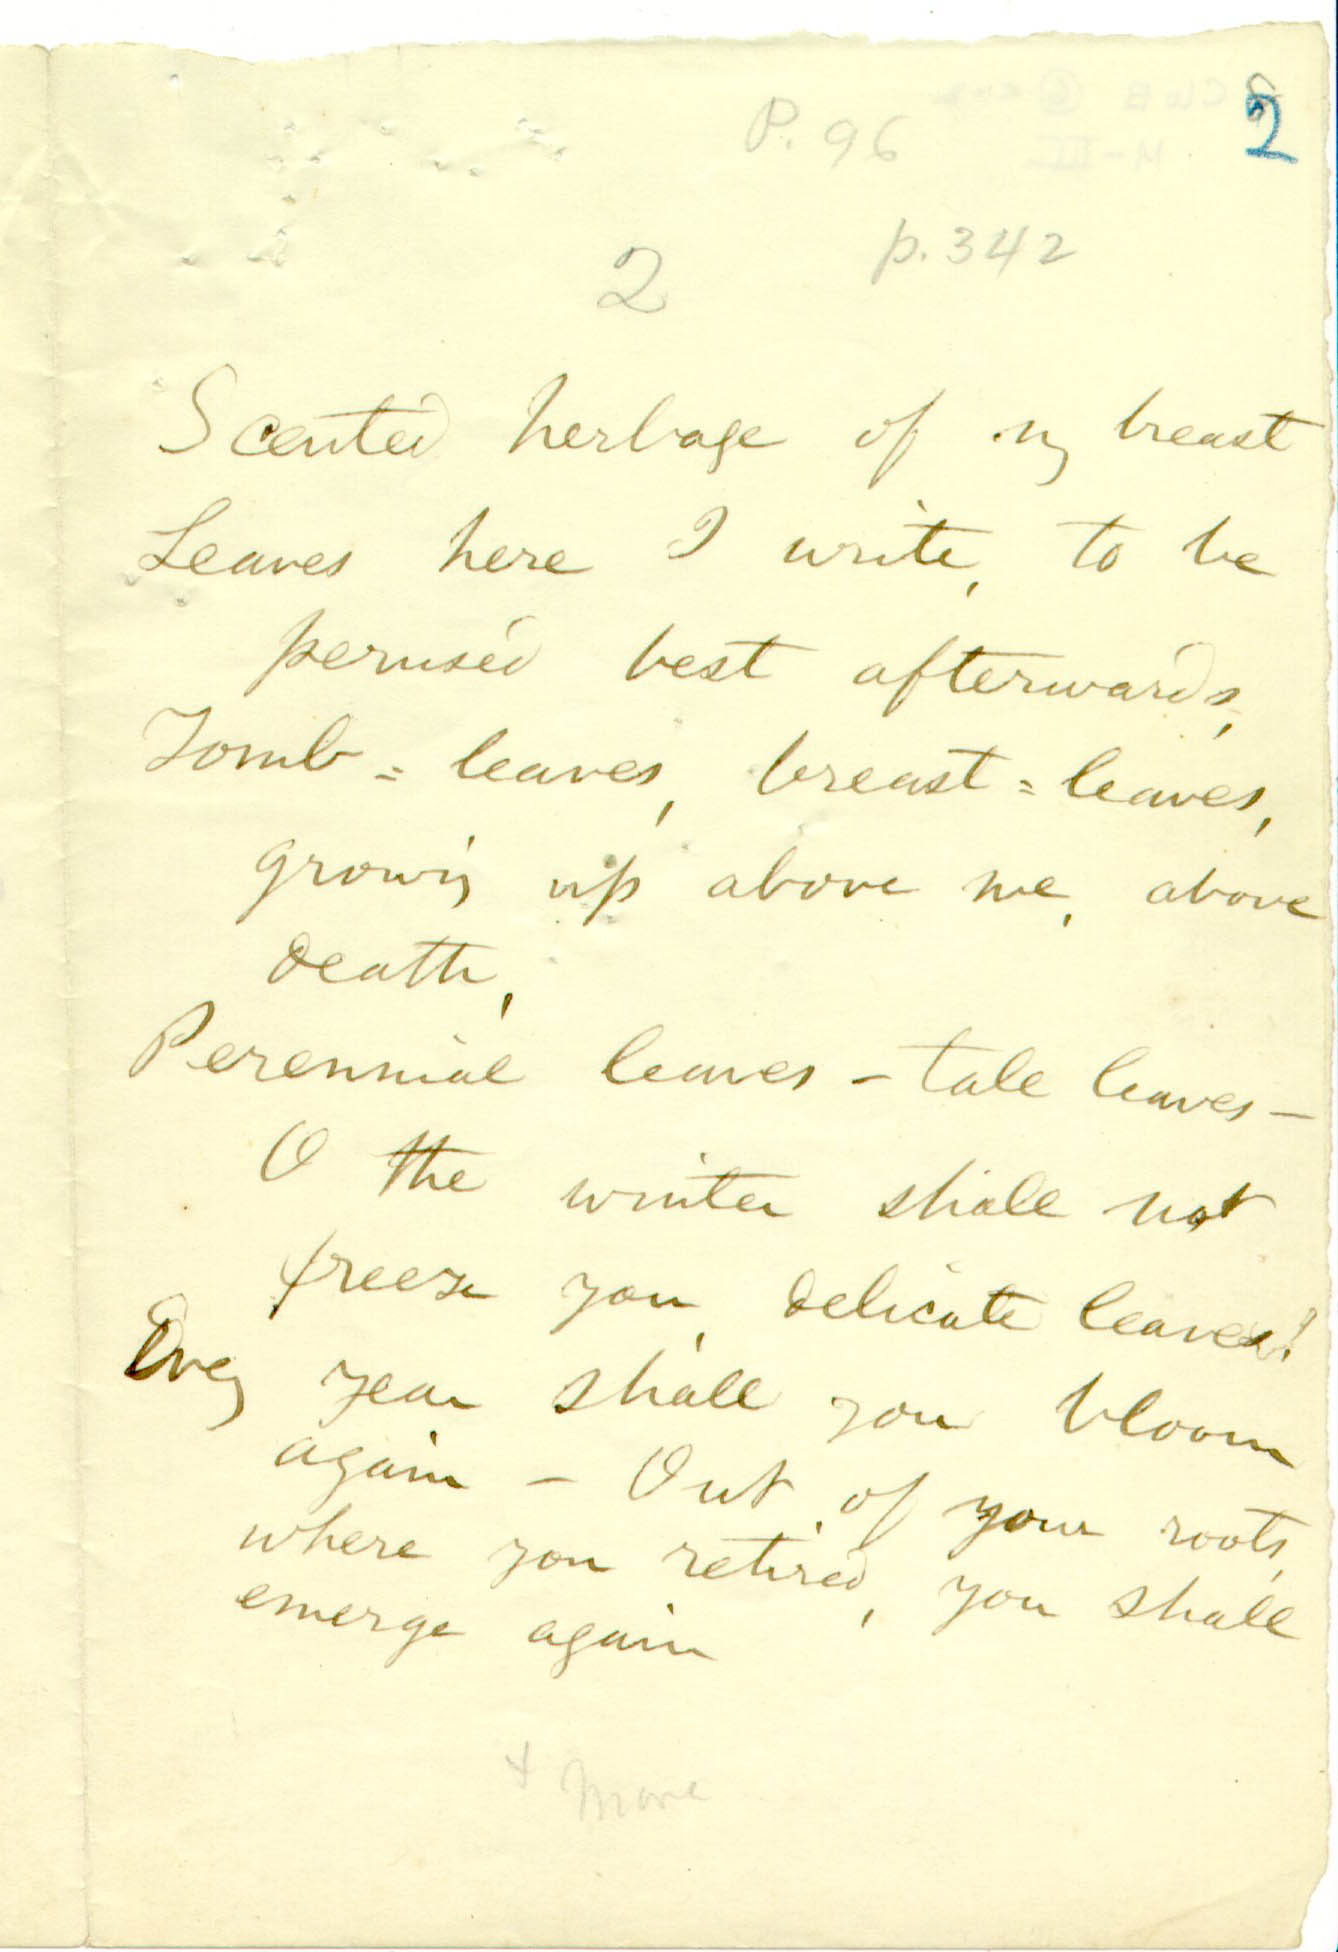 P. 96
2
p. 342
2
Scented herbage of my breast
Leaves here I write, to be
perused best afterwards,
Tomb=leaves, breast=leaves,
growing up above me, above
death,
Perennial leaves – tall leaves –
O the winter shall not
freeze you, delicate leaves!
Every year shall you bloom
again – Out of your roots,
where you retired, you shall
emerge again
+ More